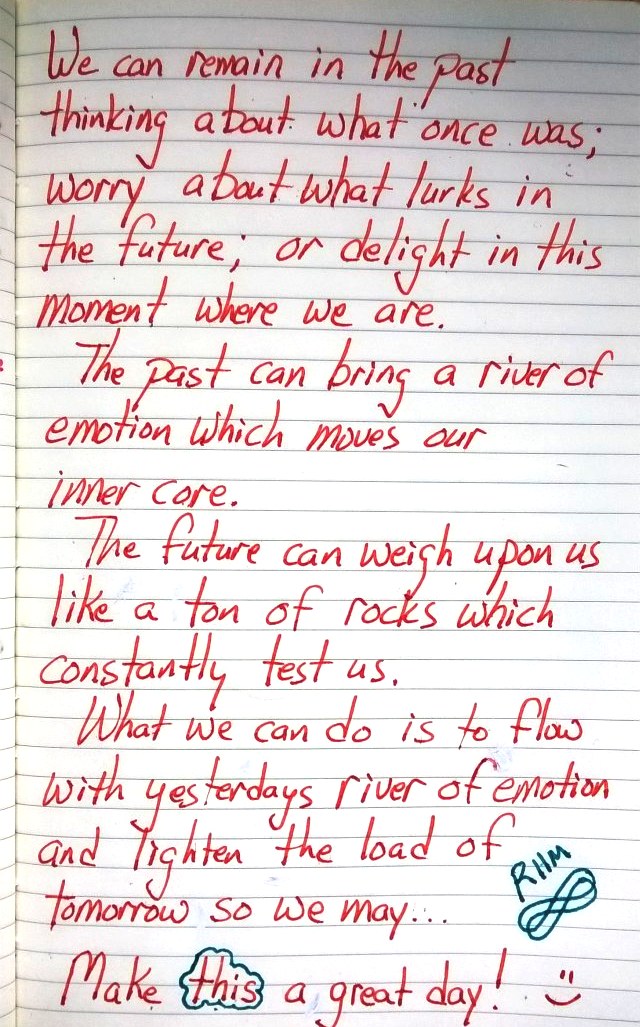 We can remain in the past
thinking about what once was;
worry about what lurks in
the future; or delight in this
moment where we are.
The past can bring a river of
emotion which moves our
inner core.
The future can weigh upon us
like a ton of rocks which
constantly test us.
What we can do is to flow
with yesterdays river of emotion
and lighten the load of
tomorrow so we may...
RHM
Make this a great day! :)